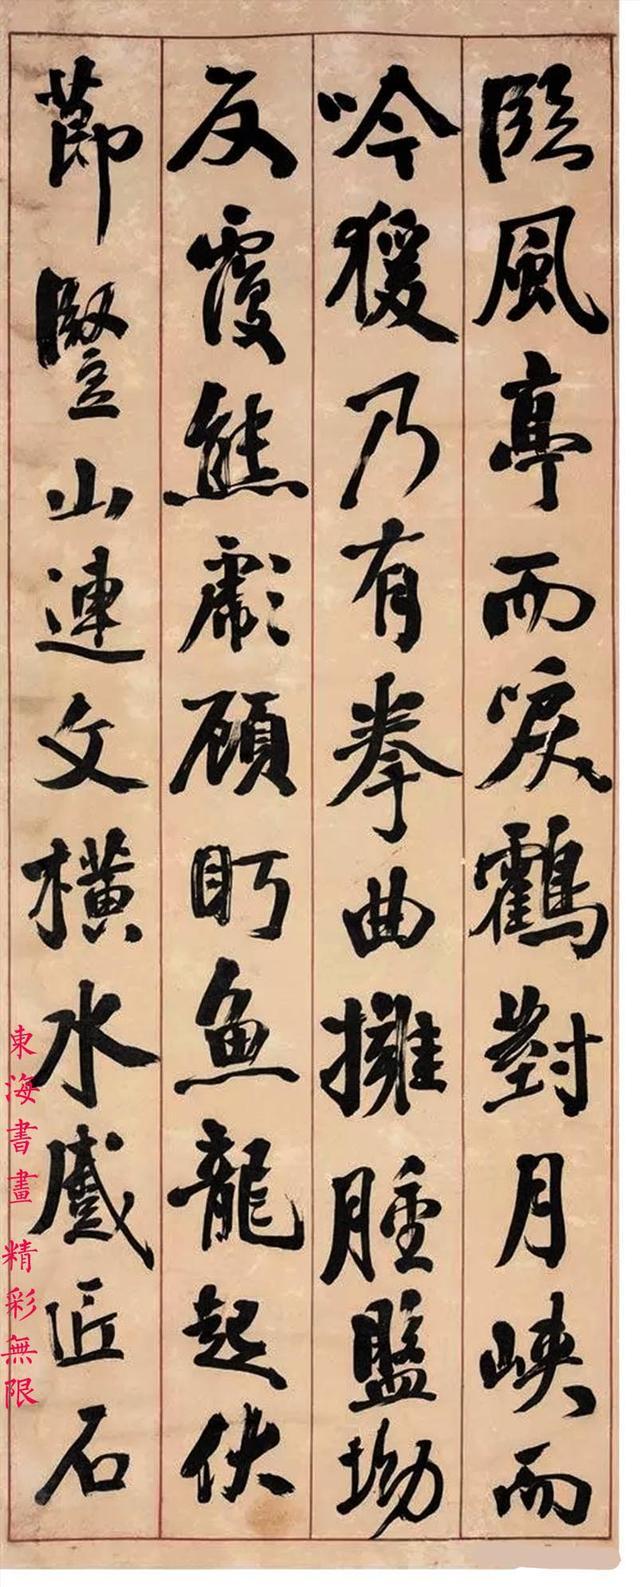 臨風亭而唳鶴對月峽而
吟猨乃有拳曲擁腫盤坳
反覆熊彪顧眄魚龍起伏
莭豎山連文橫水蹙匠石
東海書畫 精彩無限